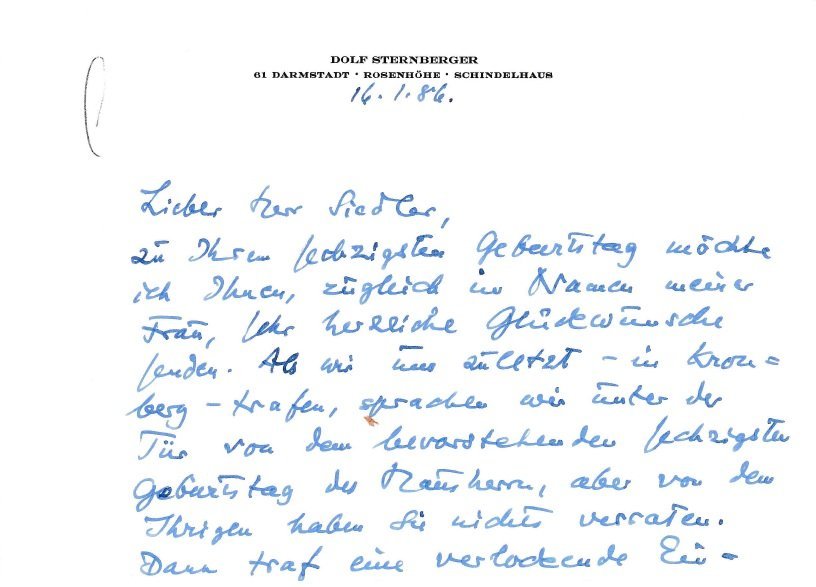 DOLF STERNBERGER
61 DARMSTADT · ROSENHÖHE · SCHINDELHAUS
16.1.86.
Lieber Herr Siedler,
zu Ihrem sechzigsten Geburtstag möchte
ich Ihnen, zugleich im Namen meiner
Frau, sehr herzliche Glückwünsche
senden. Als wir uns zuletzt – in Kron=
berg – trafen, sprachen wir unter der
Tür von dem bevorstehenden sechzigsten
Geburtstag des Hausherrn, aber von dem
Ihrigen haben Sie nichts verraten.
Dann traf eine verlockende Ein=